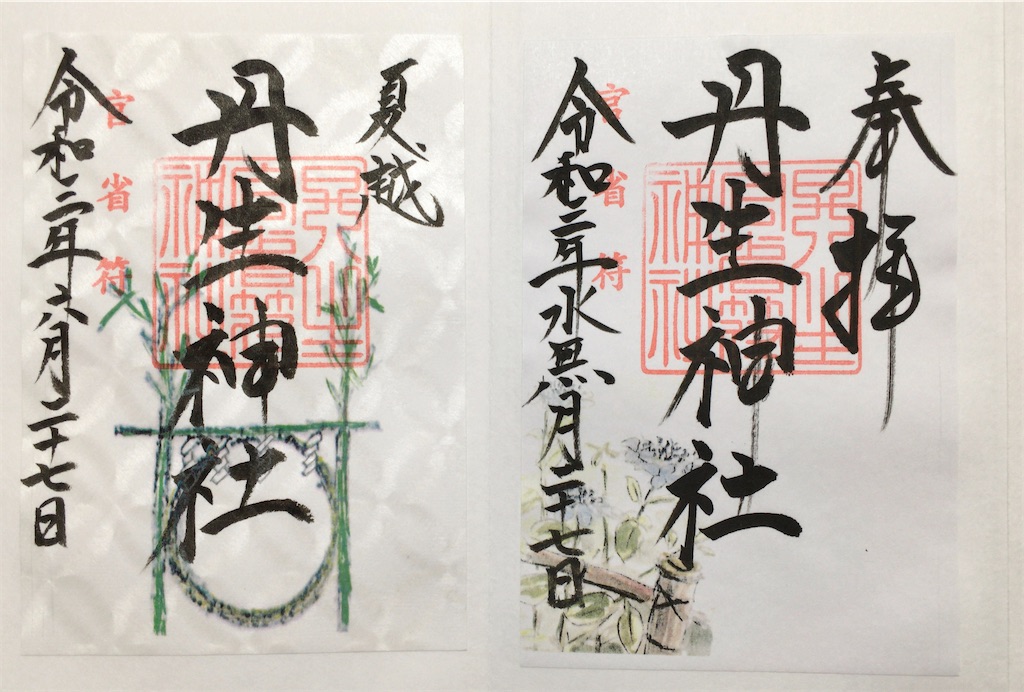 奉拝
丹生神社
官省符
令和二年水無月二十七日
夏越
丹生神社
官省符
令和二年六月二十七日